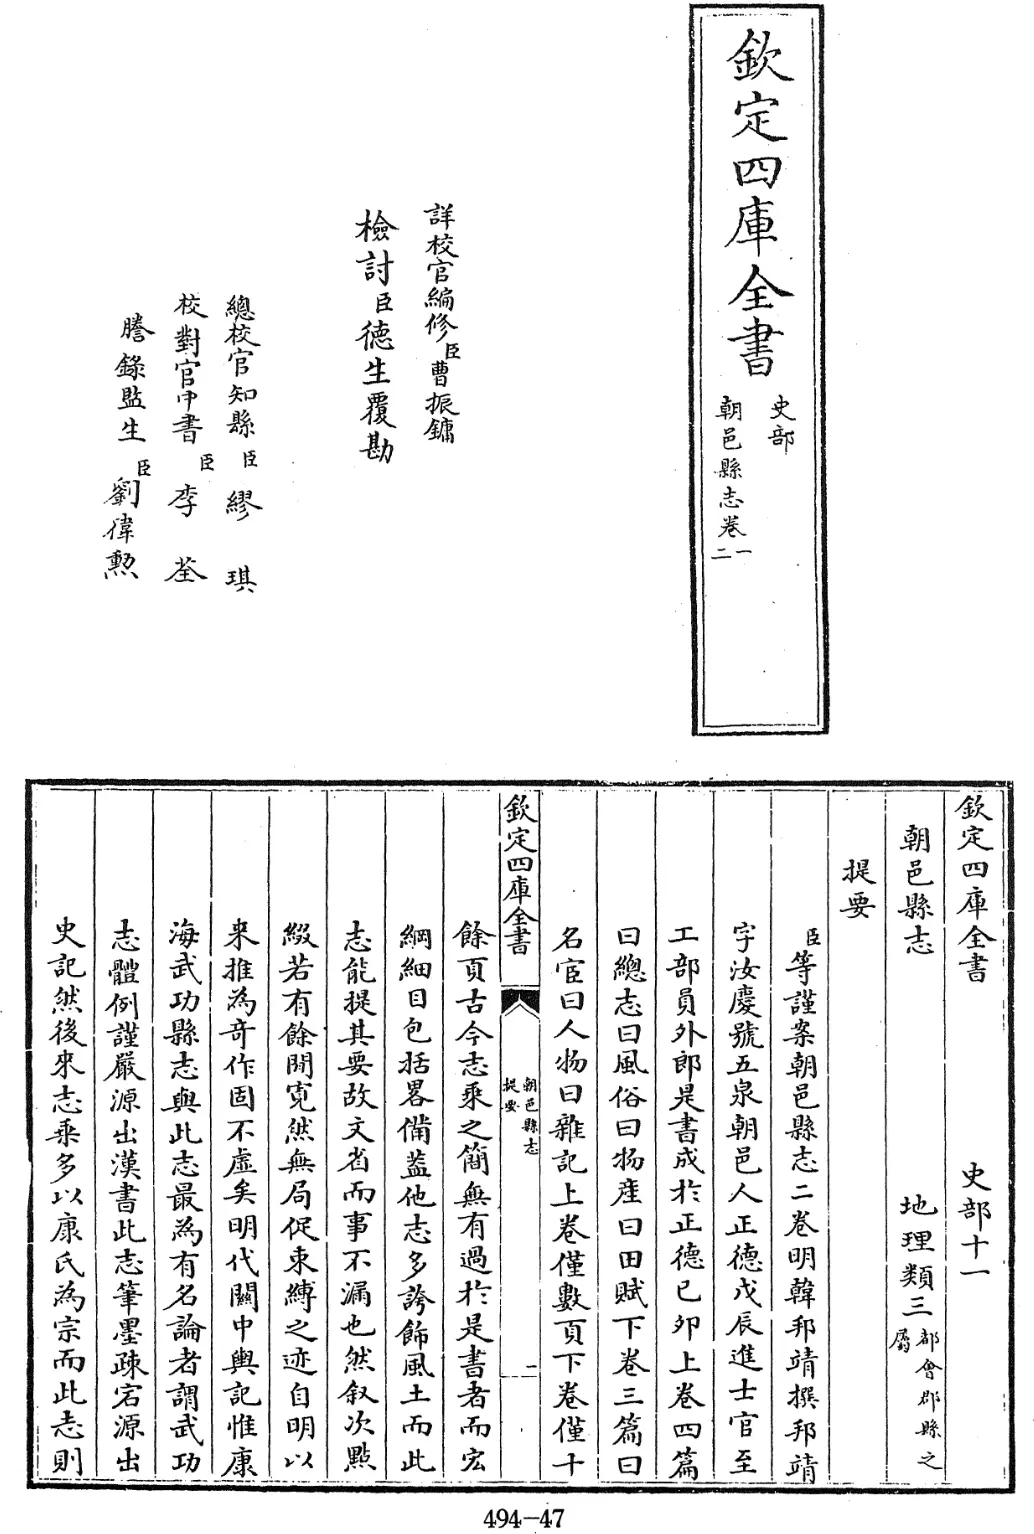 欽定四庫全書
史部
朝邑縣志卷一
二
詳校官編修臣曹振鏞
檢討臣德生覆勘
總校官知縣臣繆琪
校對官中書臣李荃
謄錄監生臣劉偉勲
欽定四庫全書
史部十一
朝邑縣志
地理類三
都會郡縣之
屬
提要
臣等謹案朝邑縣志二卷明韓邦靖撰邦靖
字汝慶號五泉朝邑人正德戊辰進士官至
工部員外郎是書成於正德已夘上卷四篇
曰總志曰風俗曰物產曰田賦下卷三篇曰
名宦曰人物曰雜記上卷僅數頁下卷僅十
欽定四庫全書
朝邑縣志
提要
二
餘頁古今志乘之簡無有過於是書者而宏
綱細目包括畧備蓋他志多誇飾風土而此
志能提其要故文省而事不漏也然叙次㸃
綴若有餘閒寛然無局促束縛之迹自明以
来推為竒作固不虚矣明代關中輿記惟康
海武功縣志與此志最為有名論者謂武功
志體例謹嚴源出漢書此志筆墨疎宕源出
史記然後來志乘多以康氏為宗而此志則
494-47